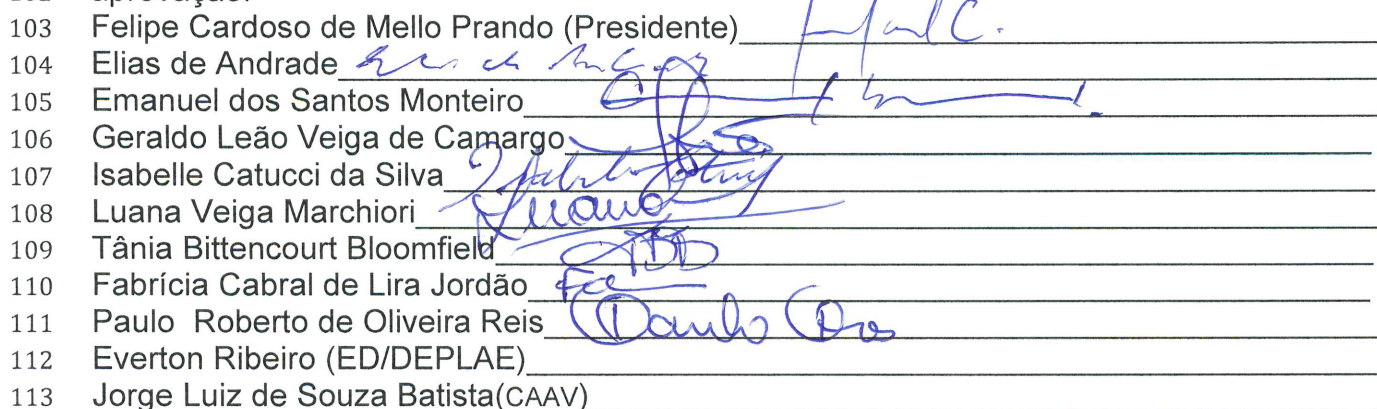 102 aprovação.
103 Felipe Cardoso de Mello Prando (Presidente)
104 Elias de Andrade
105 Emanuel dos Santos Monteiro
106 Geraldo Leão Veiga de Camargo
107 Isabelle Catucci da Silva
108 Luana Veiga Marchiori Luana
109 Tânia Bittencourt Bloomfield TBB
110 Fabrícia Cabral de Lira Jordão
111 Paulo  Roberto de Oliveira Reis Paulo
112 Everton Ribeiro (ED/DEPLAE)
113 Jorge Luiz de Souza Batista(CAAV)